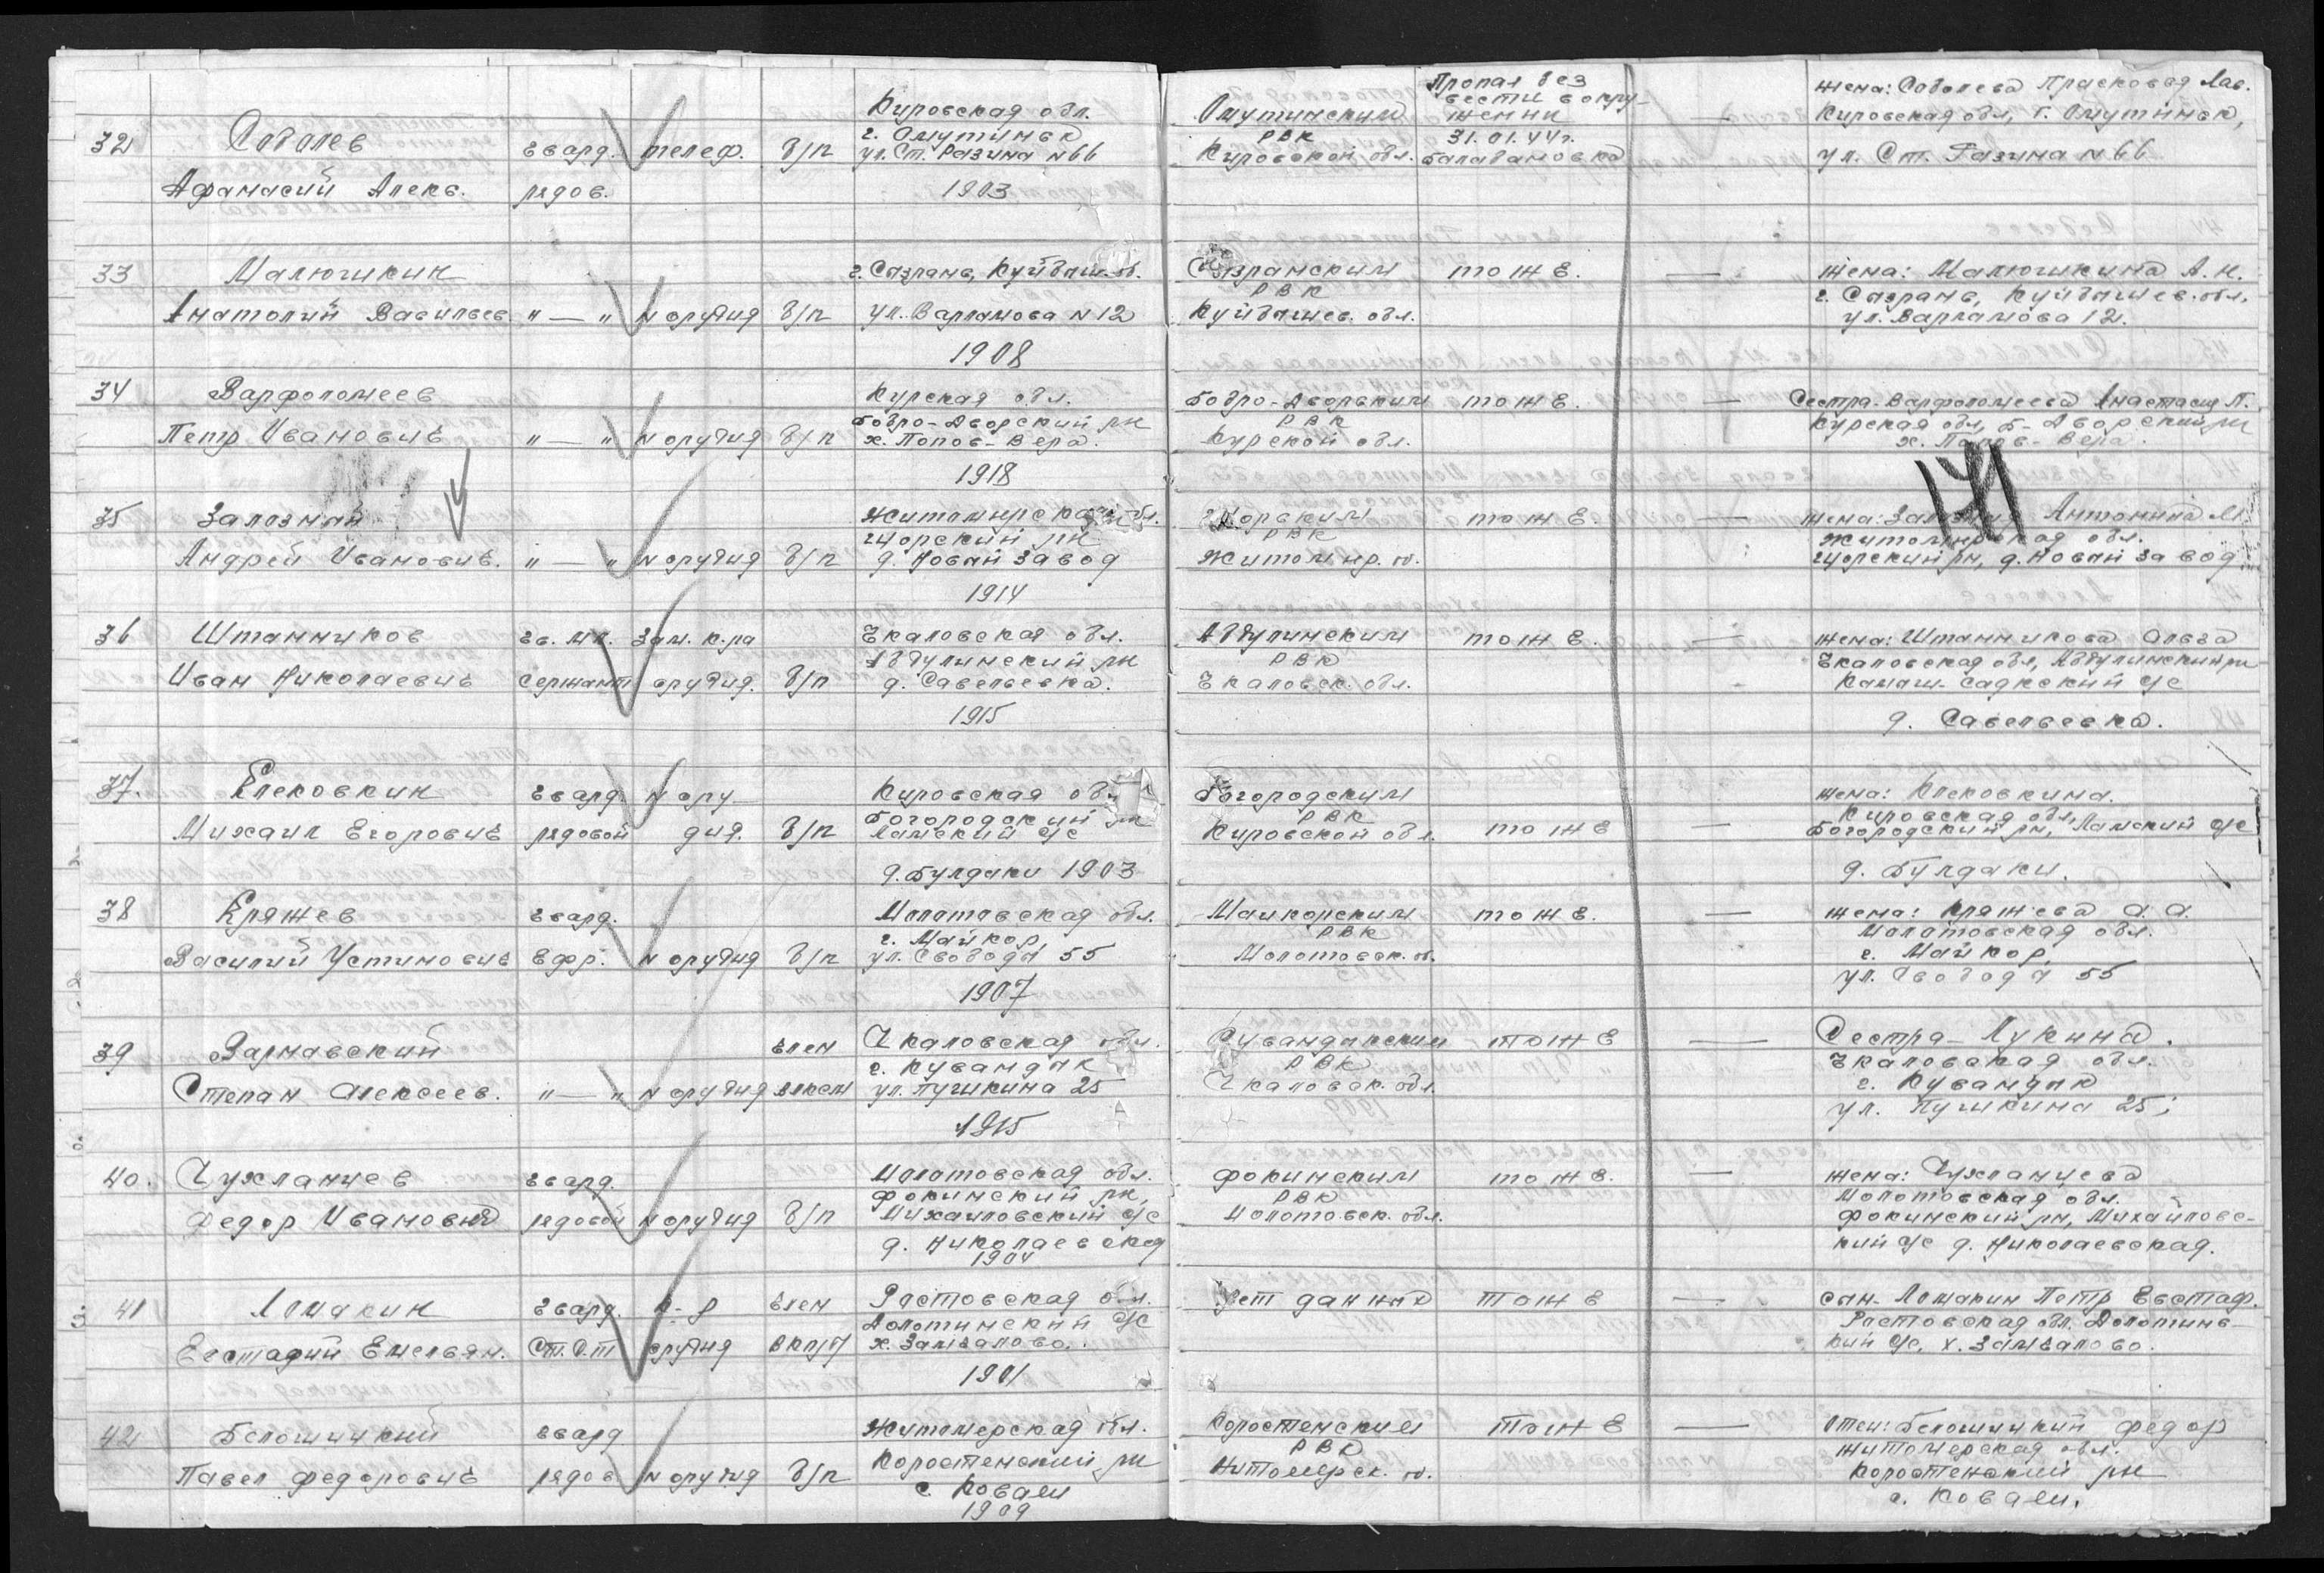 32 Соболев гвард. телеф. б/п Кировская обл. г. Омутнинск ул. Ст. Разина N 66 Омутнинским РВК Кировской обл. Пропал без вести в окружении 31.01.44г. Балабановка — жена: Соболева Прасковья Лав. Кировская обл, г. Омутнинск, ул. Ст. Разина N 66
Афанасий Алекс. рядов. 1903
33 Малюшкин г. Сызрань, Куйбыш. об. Сызранским РВК то же. — жена: Малюшкина А. Н. г. Сызрань, Куйбышев. обл.
Анатолий Васильев " — " N орудия б/п ул. Варламова N 12 Куйбышев. обл. ул. Варламова 12.
1908
34 Варфоломеев Курская обл. Бобро-Дворским РВК то же. — Сестра-Варфоломеева Анастасия П.
Петр Иванович " — " N орудия б/п Бобро-Дворский рн х. Попов-Вера. Курской обл. Курская обл, Б-Дворский рн х. Попов-Вера.
1918
35 Залозный Житомирская обл. Щорским РВК то же. — жена: Антонина 141
Андрей Иванович. " — " N орудия б/п Щорский рн д. Новый завод Житомир. о. Житомирская обл. Щорский рн, д. Новый завод
1914
36 Штанников гв. мл. зам. к-ра Чкаловская обл. Абдулинским РВК то же. — жена: Штанникова Ольга
Иван Николаевич сержант орудия. б/п Абдулинский рн д. Савельевка. Чкаловск. обл. Чкаловская обл, Абдулинский рн Камыш-Садкский с/с
1915 д. Савельевка.
37. Клековкин гвард. N ору- Кировская обл. Богородским РВК жена: Клековкина.
Михаил Егорович рядовой дия. б/п Богородский рн Ламский с/с Кировской обл. то же — Кировская обл, Богородский рн, Ламский с/с
д. Булдаки 1903 д. Булдаки.
38 Кряжев гвард. Молотовская обл. Майкорским РВК то же. — жена: Кряжева А. А. Молотовская обл.
Василий Устинович ефр. N орудия б/п г. Майкор, ул. Свободы 55 Молотовск. об. г. Майкор, ул. Свобода 55
1907
39 Варнавский член Чкаловская обл. Кувандыкским РВК то же — Сестра-Лукина. Чкаловская обл.
Степан Алексеев. " — " N орудия влксм г. Кувандык ул. Пушкина 25 Чкаловск. обл. г. Кувандык ул. Пушкина 25;
1915
40. Чухланцев гвард. Молотовская обл. Фокинским РВК то же. — жена: Чухланцева Молотовская обл.
Федор Иванович рядовой N орудия б/п Фокинский рн, Михайловский с/с Молотовск. обл. Фокинский рн, Михайловс-
д. Николаевская 1904 кий с/с д. Николаевская.
41 Ломакин гвард. к-р член Ростовская обл. Нет данных то же — сын-Ломакин Петр Евстаф.
Евстафий Емельян. Ст. с-т орудия ВКП/б/ Долотинский с/с х. Замчалово. Ростовская обл. Долотинс- кий с/с, х. Замчалово.
1901
42 Белошицкий гвард Житомерская обл. Коростенским РВК то же — Отец: Белошицкий Федор Житомерская обл.
Павел Федорович рядов N орудия б/п Коростенский рн с. Ковали Житомерск. о. Коростенский рн с. Ковали.
1909